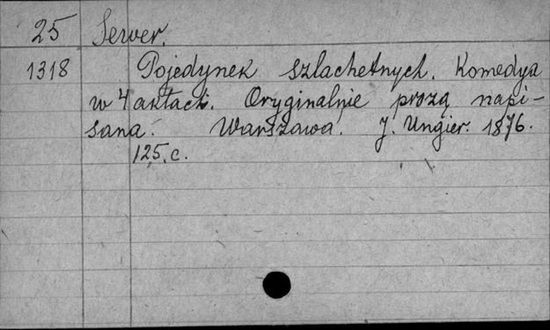 25 Sewer.
1318 Pojedynek szlachetnych. Komedya
w 4 aktach. Oryginalnie prozą napi-
sana. Warszawa. J. Ungier. 1876.
125 c.